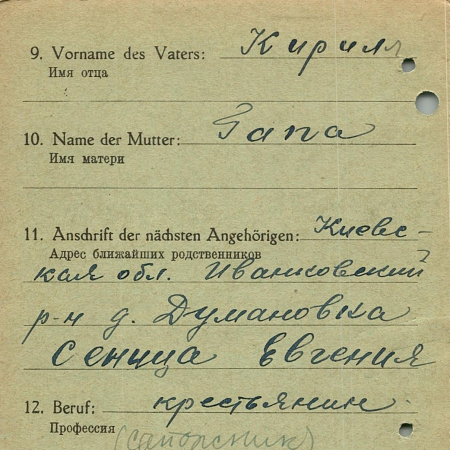 9. Vorname des Vaters: Кирилл
Имя отца
10. Name der Mutter: Гапа
Имя матери
11. Anschrift der nächsten Angehörigen: Киевс-
Адрес ближайших родственников
кая обл. Иванковский
р-н д. Думановка
Сеница Евгения
12. Beruf: крестьянин
Профессия (сапожник)